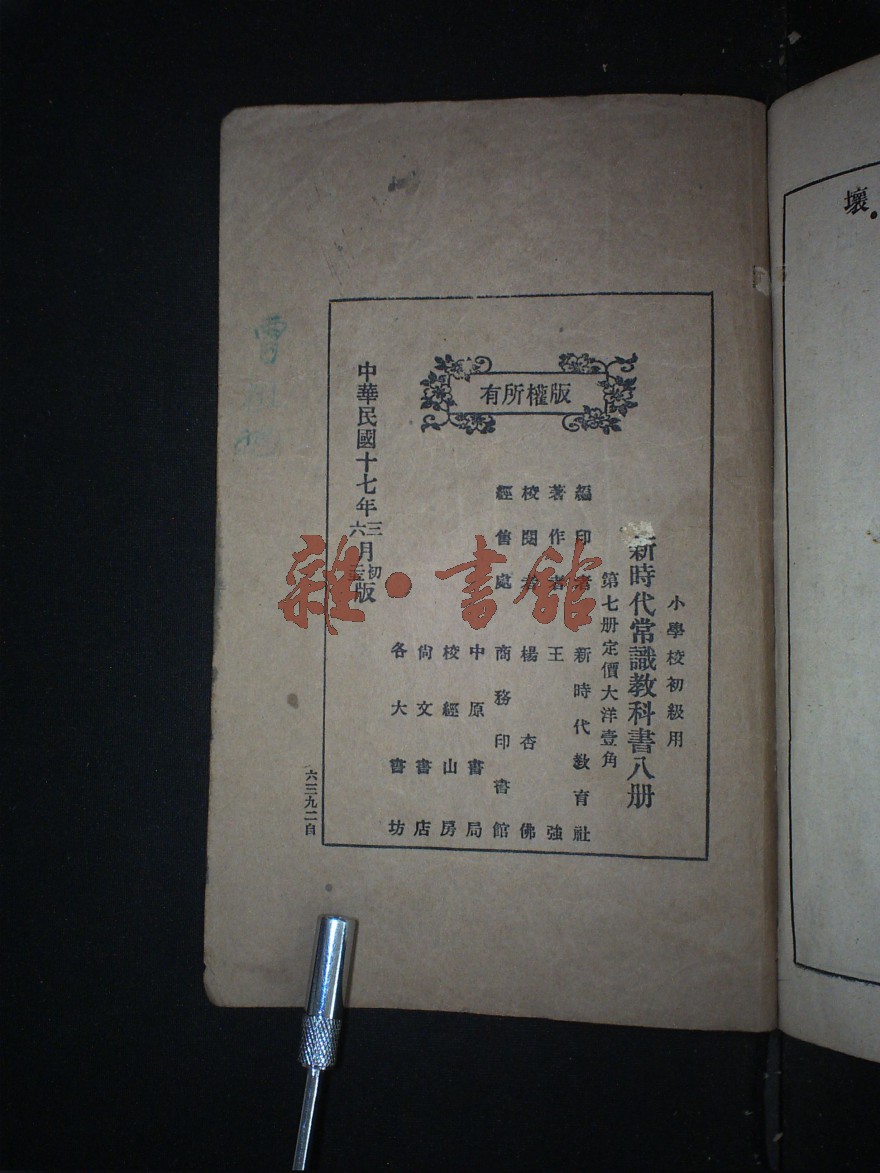 壞．
小學校初級用
新時代常識教科書八册
第七册定價大洋壹角
編印者 新時代教育社
著作者 王強
校閱者 楊杏佛
經售處 商務印書館
中原書局
校經山房
尙文書店
各大書坊
有所權版
中華民國十七年三月初版
六三九二自
雜·書館
曹